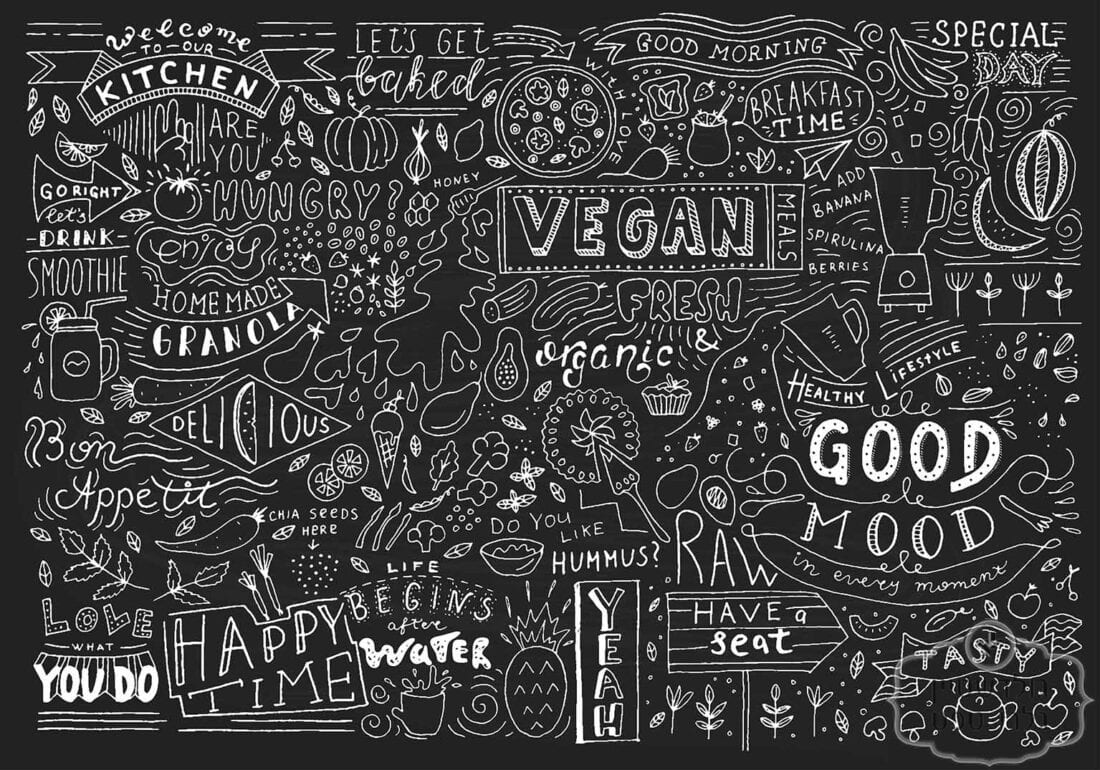 welcome
TO-OUR
KITCHEN
ARE
YOU
HUNGRY?
LET'S GET
baked
WITH LOVE
GOOD MORNING
BREAKFAST
TIME
SPECIAL
DAY
GO RIGHT
let's
-DRINK-
SMOOTHIE
enjoy
HOMEMADE
GRANOLA
HONEY
VEGAN
MEALS
ADD
BANANA
SPIRULINA
BERRIES
FRESH
&
organic
HEALTHY
LIFESTYLE
GOOD
MOOD
in every moment
DELICIOUS
Bon
Appétit
CHIA SEEDS
HERE
DO YOU
LIKE
HUMMUS?
RAW
LOVE
WHAT
YOU DO
HAPPY
TIME
LIFE
BEGINS
after
WATER
YEAH
HAVE a
seat
TASTY